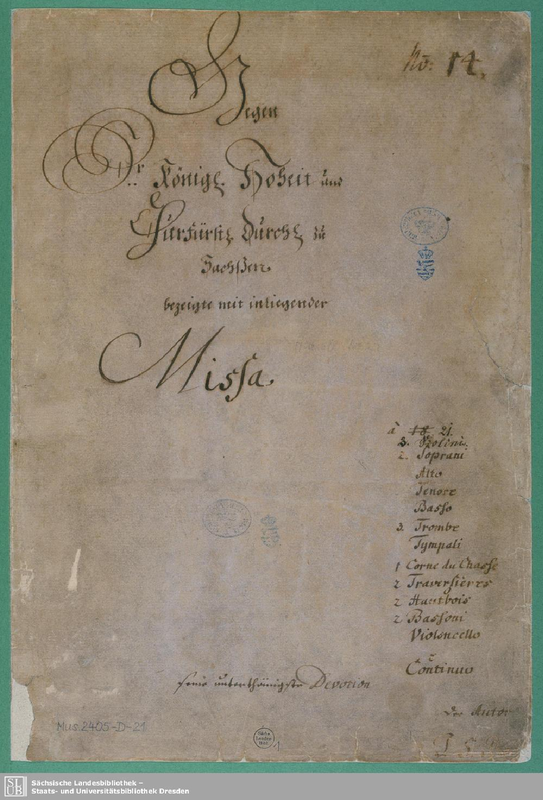 No: 14.
Gegen
Sr. Königl. Hoheit und
Churfürstl. Durchl. zu
Sachßen
bezeigte mit inliegender
Missa
à 18 21.
3. Violini.
2. Soprani
Alto
Tenore
Basso
3. Trombe
Tympali
1 Corne du Chasse
2 Traversieres
2 Hautbois
2 Bassoni
Violoncello
e
Continuo
seine unterthänigste Devotion
der Autor
J. S.
Mus. 2405-D-21
Sächs.
Landes-
Bibl.
1
SLUB
Sächsische Landesbibliothek –
Staats- und Universitätsbibliothek Dresden